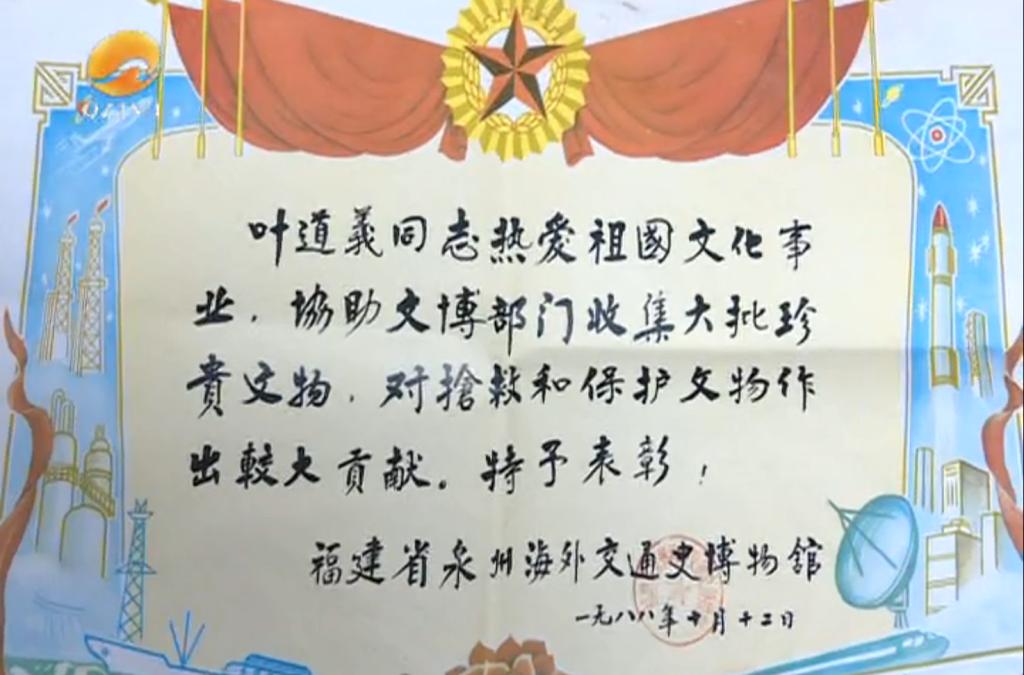 叶道義同志热愛祖國文化事
业，協助文博部门收集大批珍
貴文物，对搶救和保护文物作
出較大貢献。特予表彰！
福建省泉州海外交通史博物館
一九八八年十月十二日